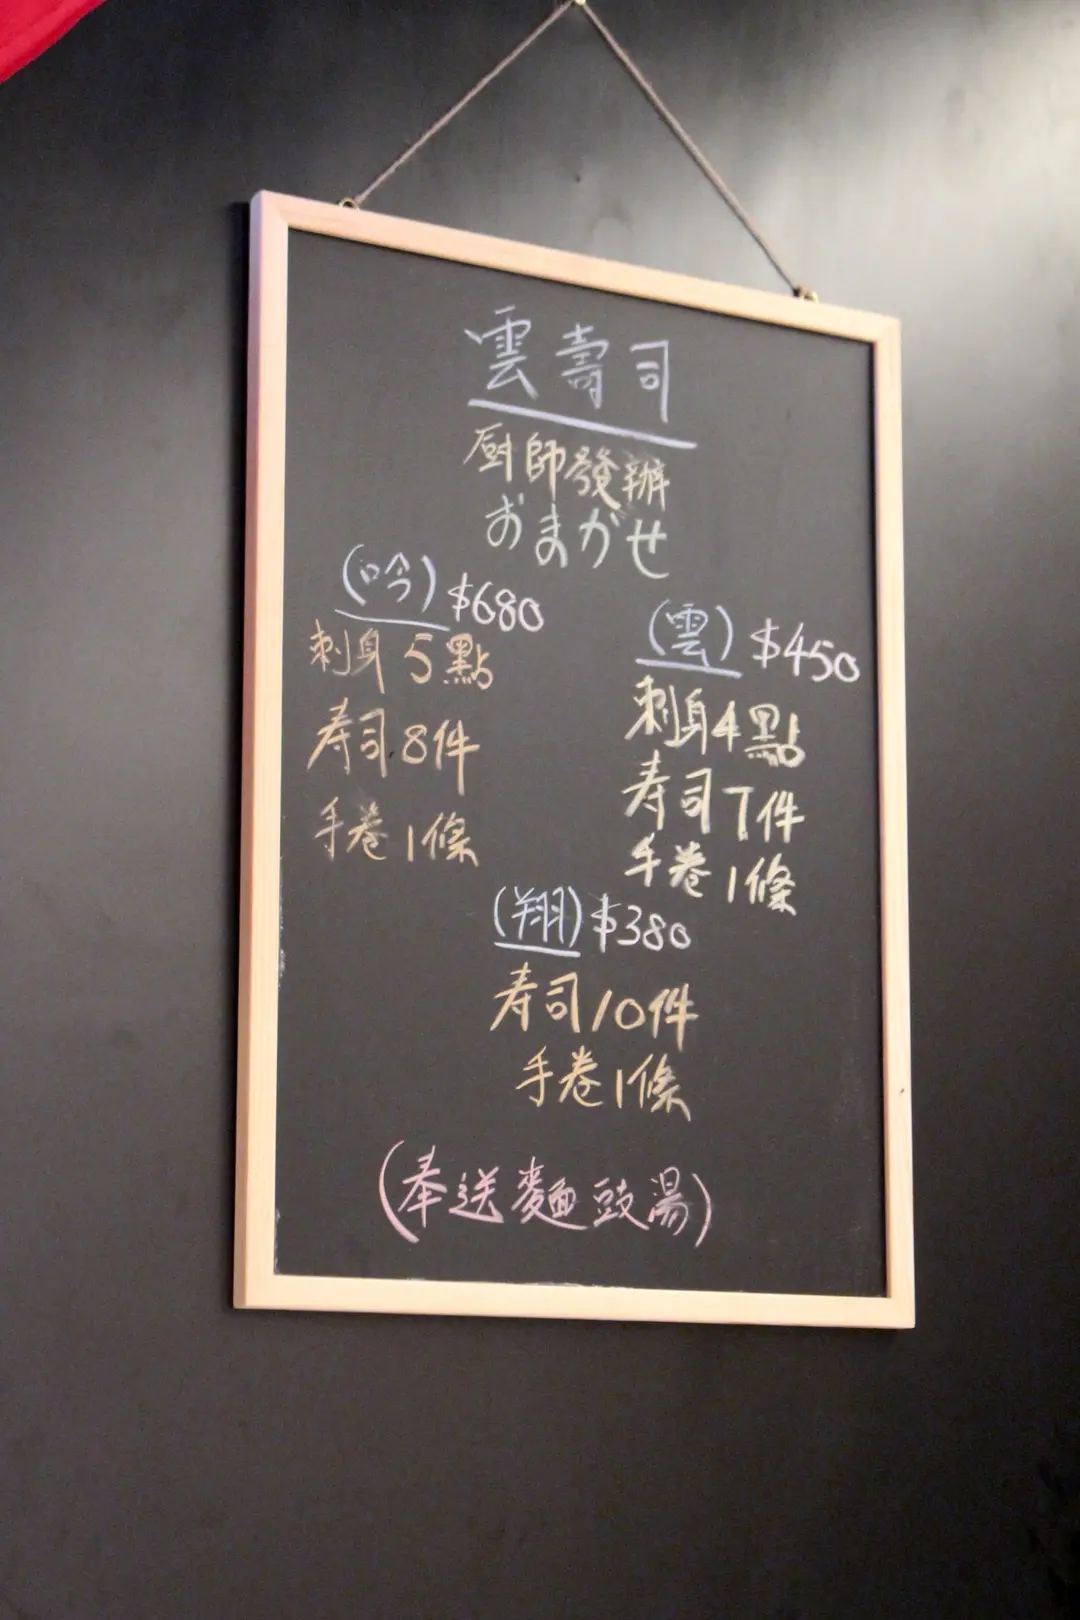 雲壽司
厨師發辦
おまかせ
(吟) $680
刺身 5點
寿司8件
手卷1條
(雲) $450
刺身4點
寿司7件
手卷1條
(翔) $380
寿司10件
手卷1條
(奉送麵豉湯)